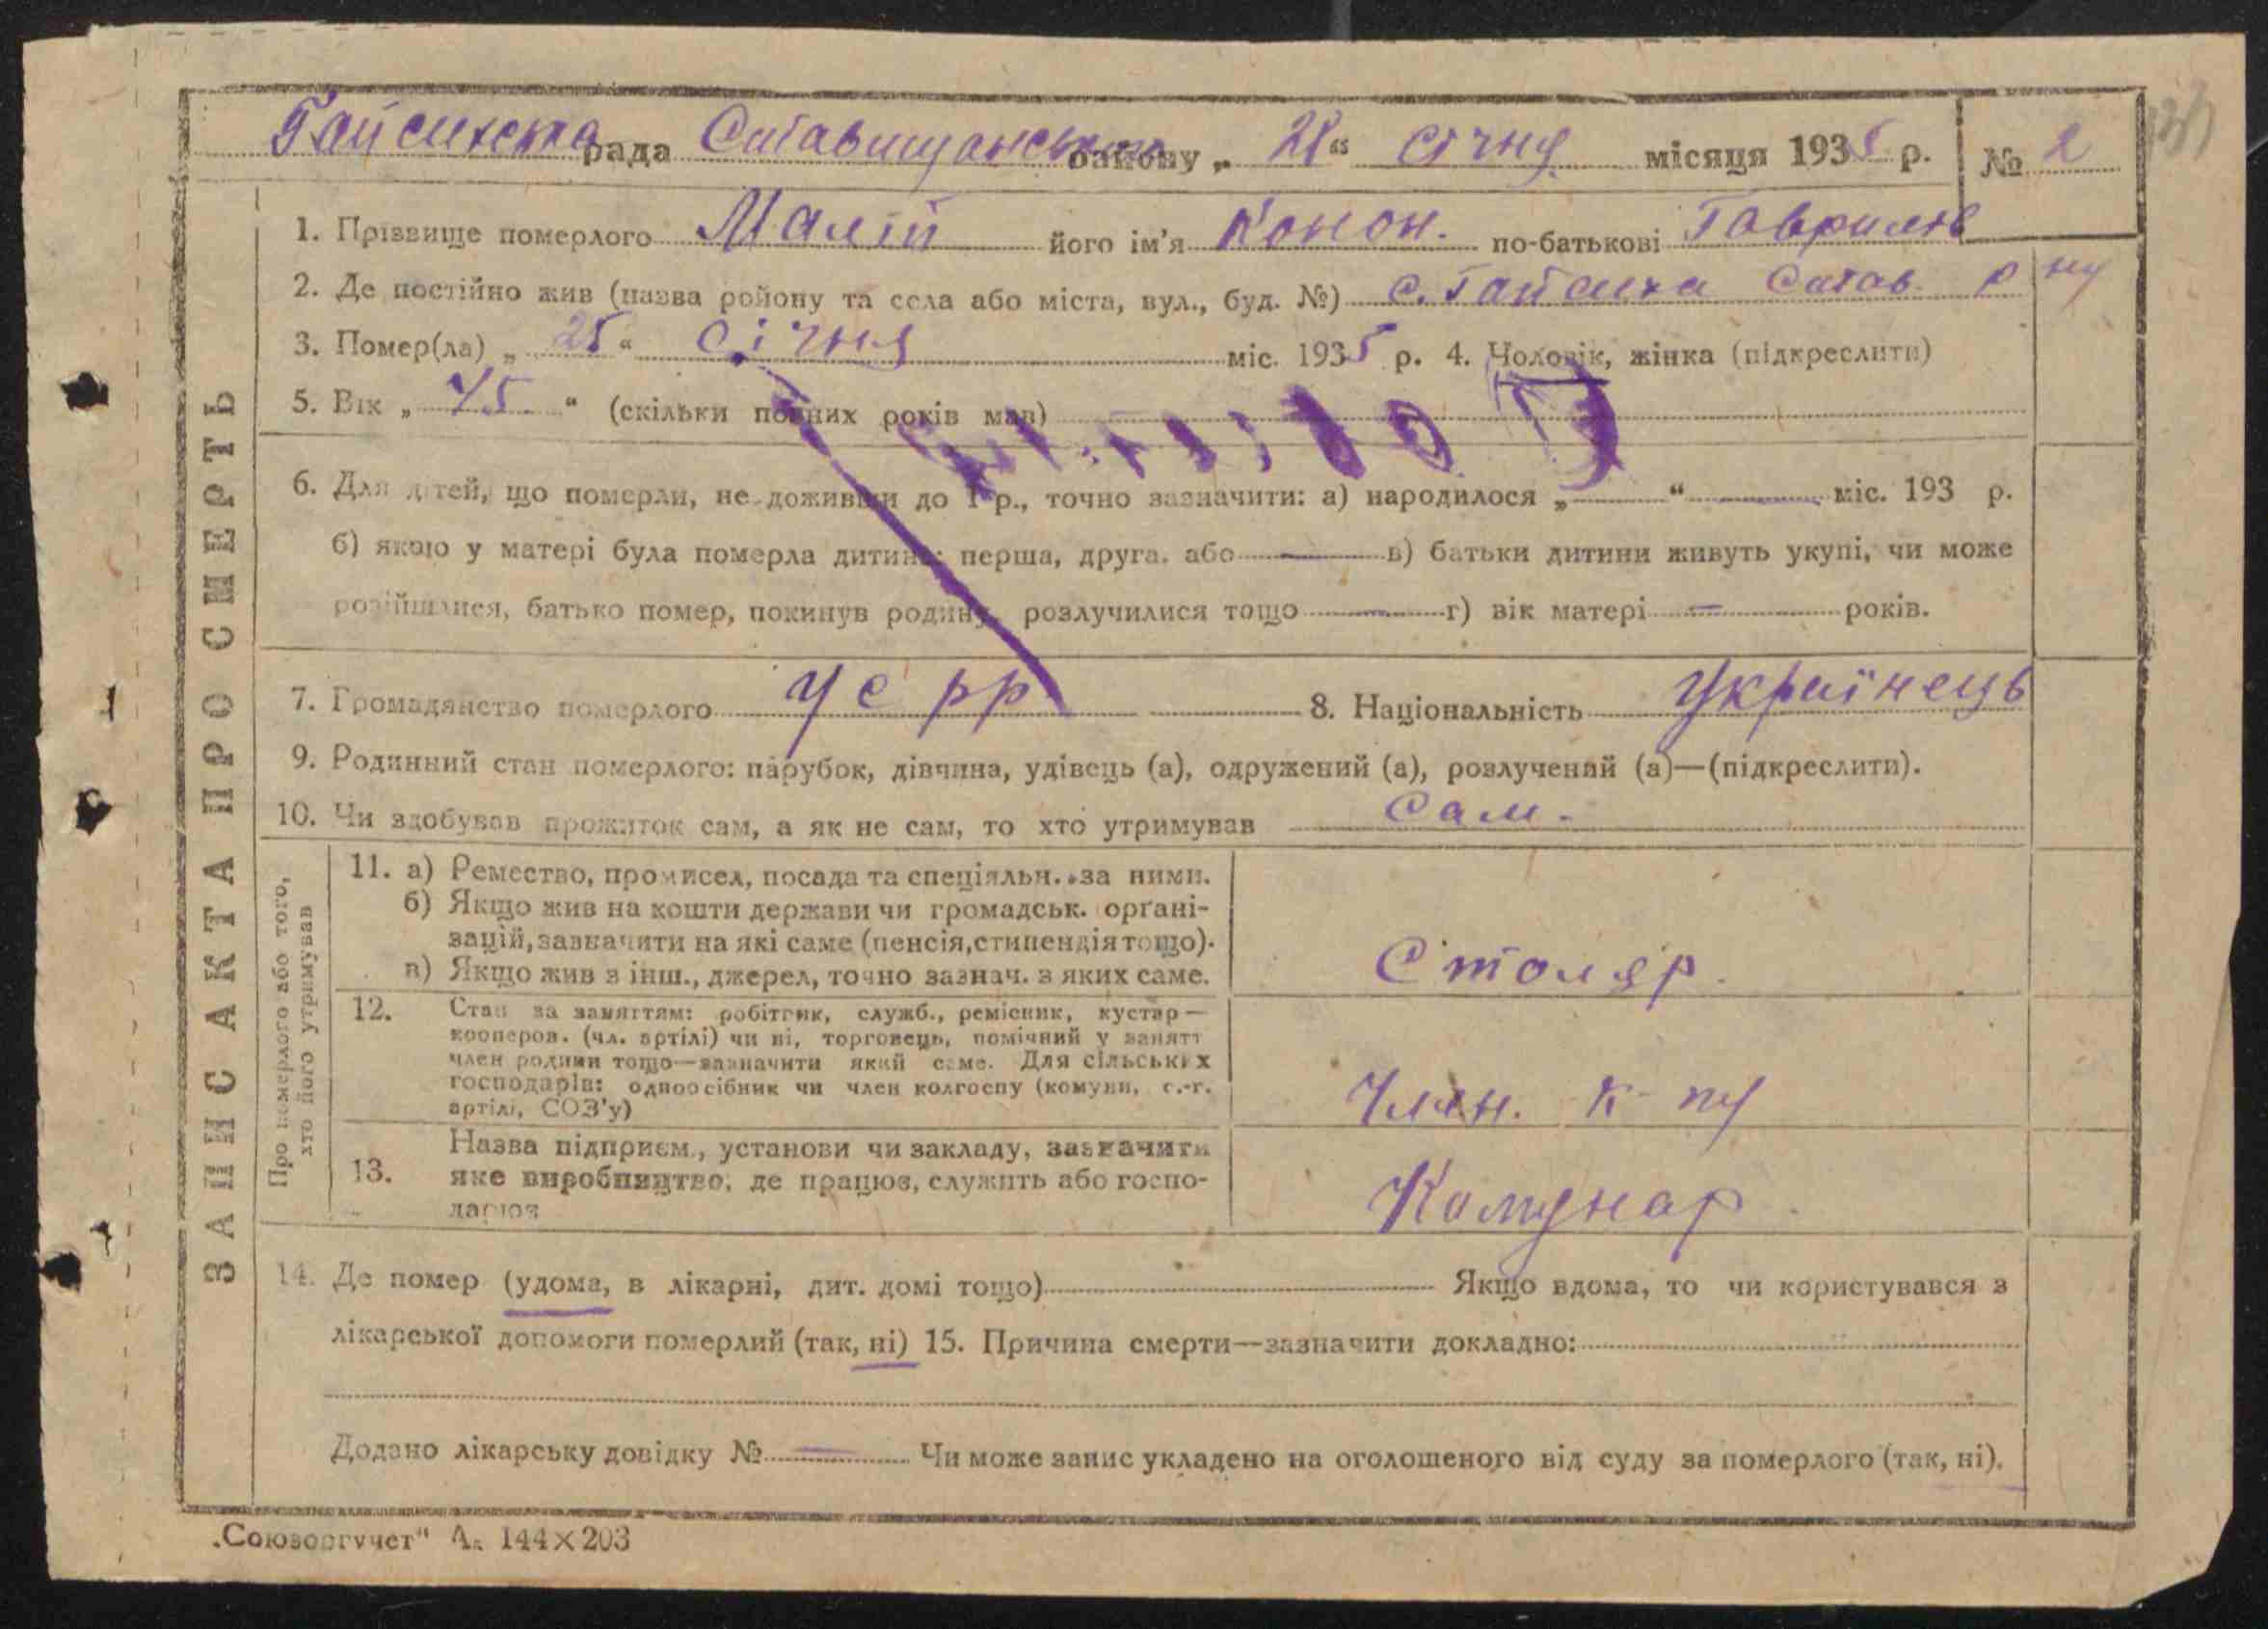 Гайсихска рада Ставищанського району „ 28 “ січня місяця 1935 р. № 2
1. Прізвище померлого Малій його ім'я Конон. по-батькові Гаврилов
2. Де постійно жив (назва ройону та села або міста, вул., буд. №) с. Гайсиха Став. р ну
3. Помер(ла) „ 25 “ січня міс. 1935 р. 4. Чоловік, жінка (підкреслити)
5. Вік „ 75. “ (скільки повних років мав)
6. Для дітей, що померли, не доживши до 1 р., точно зазначити: а) народилося „ — “ — міс. 193 р.
б) якою у матері була померла дитина: перша, друга. або — в) батьки дитини живуть укупі, чи може
розійшлися, батько помер, покинув родину, розлучилися тощо — г) вік матері — років.
7. Громадянство померлого УСРР 8. Національність Українець
9. Родинний стан померлого: парубок, дівчина, удівець (а), одружений (а), розлучений (а)—(підкреслити).
10. Чи здобував прожиток сам, а як не сам, то хто утримував Сам.
ЗАПИС АКТА ПРО СМЕРТЬ
Про померлого або того,
хто його утримував
11. а) Ремество, промисел, посада та спеціяльн. за ними.
б) Якщо жив на кошти держави чи громадськ. органі-
зацій, зазначити на які саме (пенсія, стипендія тощо).
в) Якщо жив з інш., джерел, точно зазнач. з яких саме.
Столяр.
12. Стан за заняттям: робітник, служб., ремісник, кустар—
кооперов. (чл. артілі) чи ні, торговець, помічний у занятт
член родини тощо—зазначити який саме. Для сільських
господарів: одноосібник чи член колгоспу (комуни, с.-г.
артілі, СОЗ'у)
Член. к-пу
13. Назва підприєм., установи чи закладу, зазначити
яке виробництво, де працює, служить або госпо-
дарює
Комунар.
14. Де помер (удома, в лікарні, дит. домі тощо) Якщо вдома, то чи користувався з
лікарської допомоги померлий (так, ні) 15. Причина смерти—зазначити докладно:
Додано лікарську довідку № — Чи може запис укладено на оголошеного від суду за померлого (так, ні).
„Союзоргучет“ А₅ 144×203